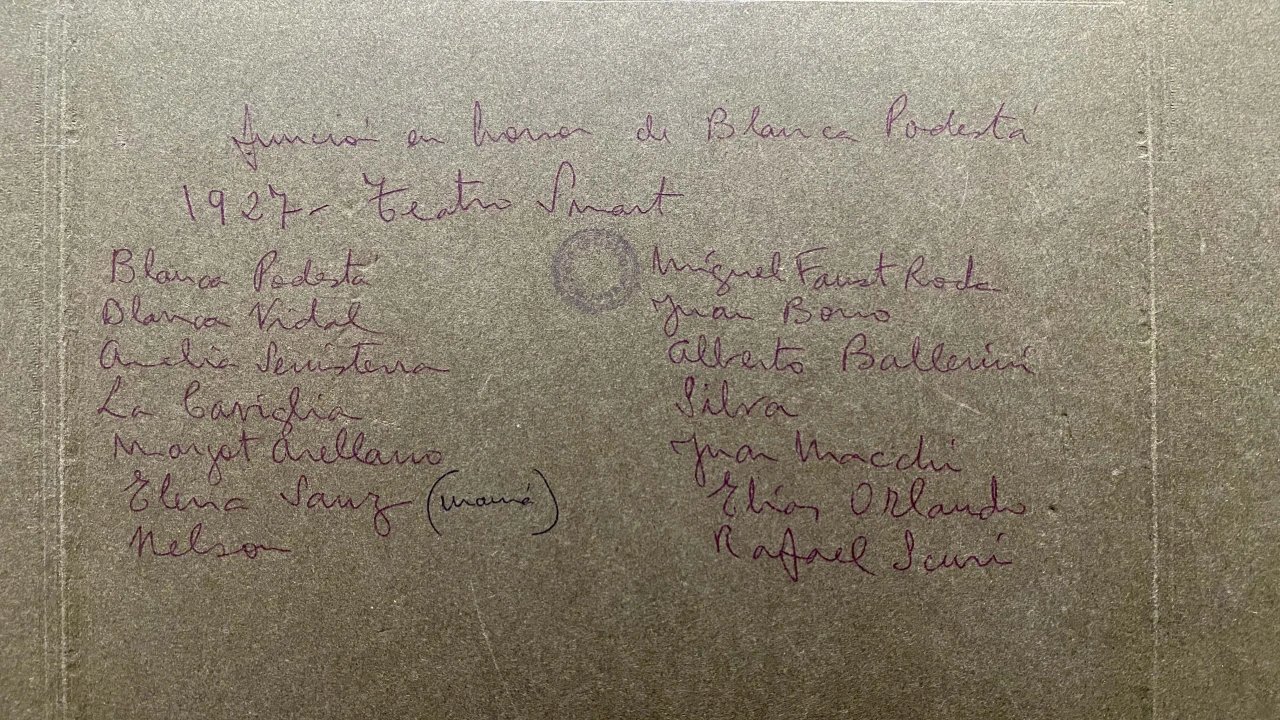 función en honor de Blanca Podestá
1927- Teatro Smart
Blanca Podestá
Blanca Vidal
Amelia Senisterra
La Caviglia
Margot Arellano
Elena Sanz (mamá)
Nelson
Miguel Faust Rocha
Juan Bono
Alberto Ballerini
Silva
Juan Macchi
Elías Orlando
Rafael Scuri